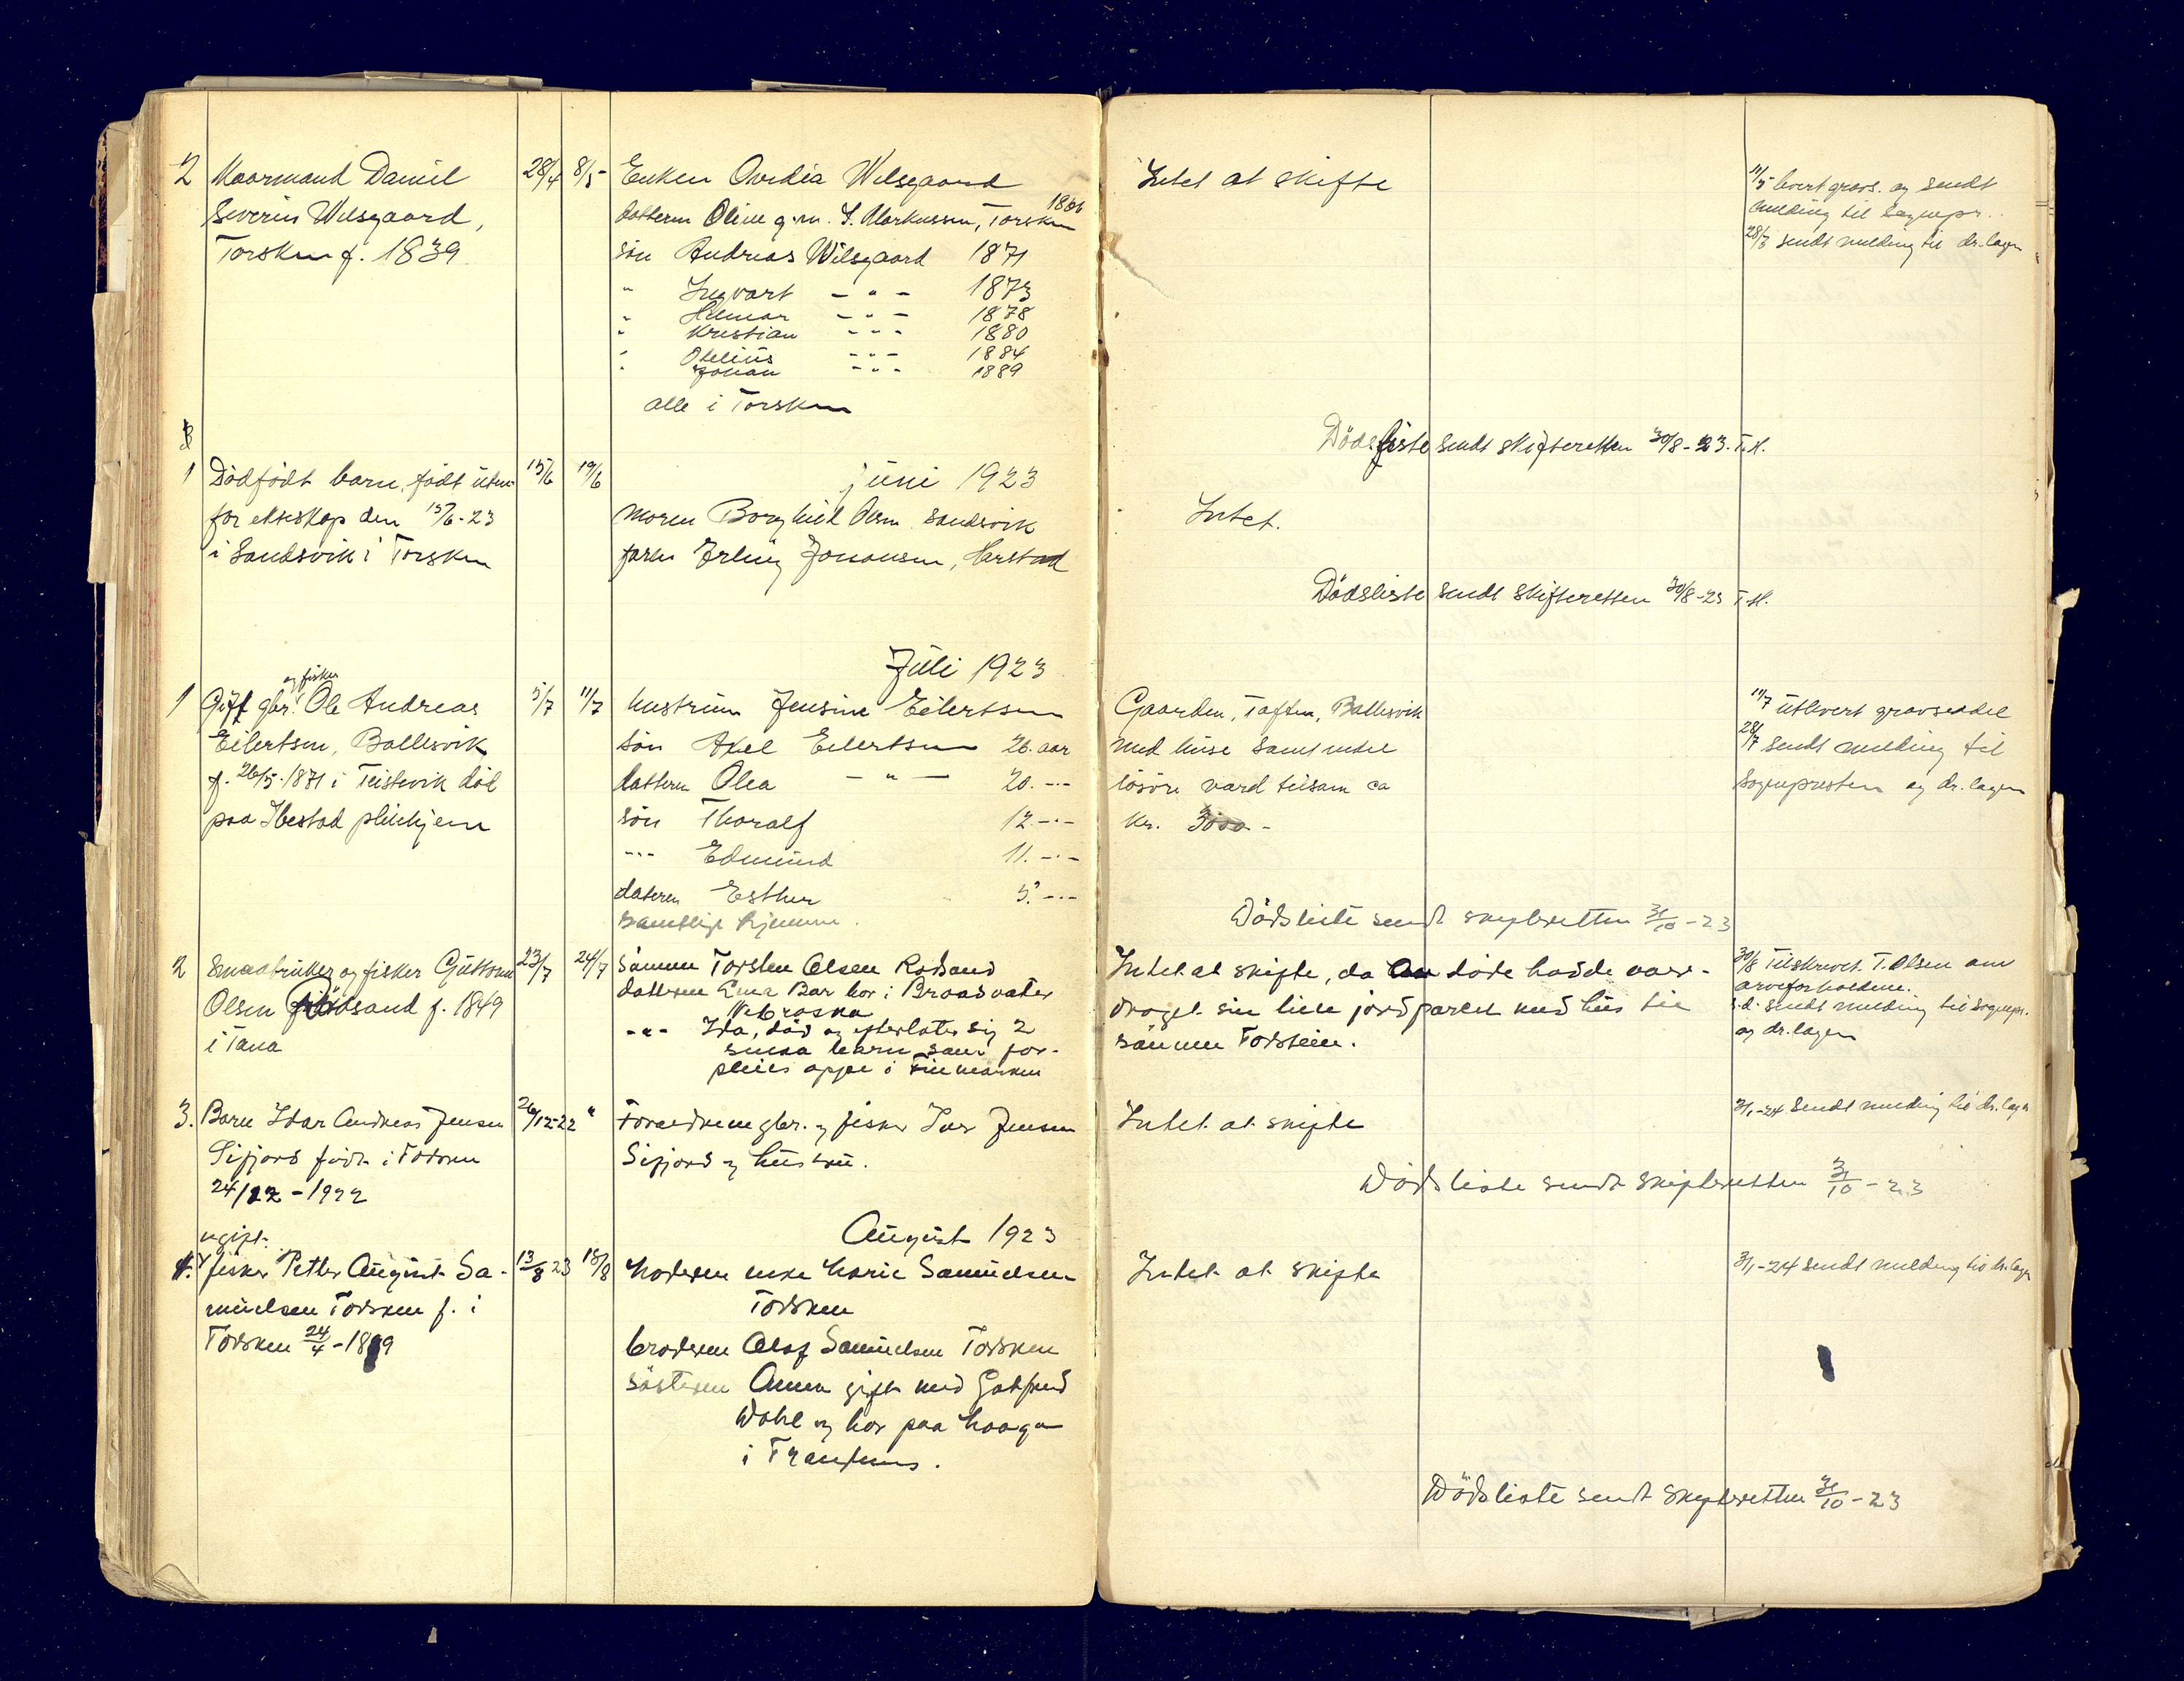 2 Kaarmand Daniel 28/4 8/5 Enken Ovedia Wilsgaard Intet at skifte 11/5 levert gravs. og sendt
Severin Wilsgaard, datteren Oline g.m. S. Markussen, Torsken 1866 melding til sognepr.
Torsken f. 1839 søn Andreas Wilsgaard 1871 28/7 sendt melding til dr. lagen
" Ingvart - " - 1873
" Hilmar - " - 1878
" Kristian - " - 1880
" Otelius - " - 1884
" Johan - " - 1889
alle i Torsken
Dödsliste sendt skifteretten 30/8-23. T.H.
juni 1923
1 Dödfödt barn, födt uten- 15/6 19/6
for ekteskap den 15/6-23 moren Borghild Olsen Sandsvik Intet.
i Sandsvik i Torsken faren Erling Johansen, Harstad
Dödsliste sendt skifteretten 30/8-23 T.H.
Juli 1923
og fisker
1 Gift gbr. Ole Andreas 5/7 11/7 hustruen Jensine Eilertsen Gaarden, Toften, Ballesvik 11/7 utlevert gravseddel
Eilertsen, Ballesvik sön Axel Eilertsen 26. aar med huse samt endel 28/7 sendt melding til
f. 26/5-1871 i Teistevik död datteren Olea - " - 20. -"- lösöre værd tilsam ca Sognepresten og dr. lagen
paa Ibestad pleiehjem sön Thoralf 12. -"- kr. 3000-
-"- Edmund 11. -"-
datteren Esther 5. -"-
samtlige hjemme.
Dödsliste sendt skifteretten 31/10-23
2 Smaabruker og fisker Guttorm 23/7 24/7 sönnen Torsten Olsen Rödsand Intet at skifte, da den döde hadde over- 30/8 Tilskrevet T. Olsen om
Olsen Rödsand f. 1849 datteren Ema Bar bor i Broadvater draget sin lille jordparcel med hus til arveforholdene.
i Tana Nebraska sönnen Torstein. s.d. sendt melding til sognepr.
-"- Ida, död og efterlater sig 2 og dr. lagen
smaa barn som for-
pleies oppe i Finmarken
3. Barn Idar Andreas Jensen 26/12-22 " Forældrene gbr. og fisker Ivar Jensen Intet at skifte 3/1-24 Sendt melding til dr. lagen
Sifjord födt i Torsken Sifjord og hustru.
24/12-1922
Dödsliste sendt skifteretten 31/10-23
August 1923
ugift
4. fisker Petter August Sa- 13/8 23 18/8 Moderen enke Marie Samuelsen Intet at skifte 3/1-24 sendt melding til dr. lagen
muelsen Torsken f. i Torsken
Torsken 24/4-1889 broderen Olaf Samuelsen Torsken
sösteren Anna gift med Gotfred
Dahl og bor paa
i Tranenes.
Dödsliste sendt skifteretten 31/10-23